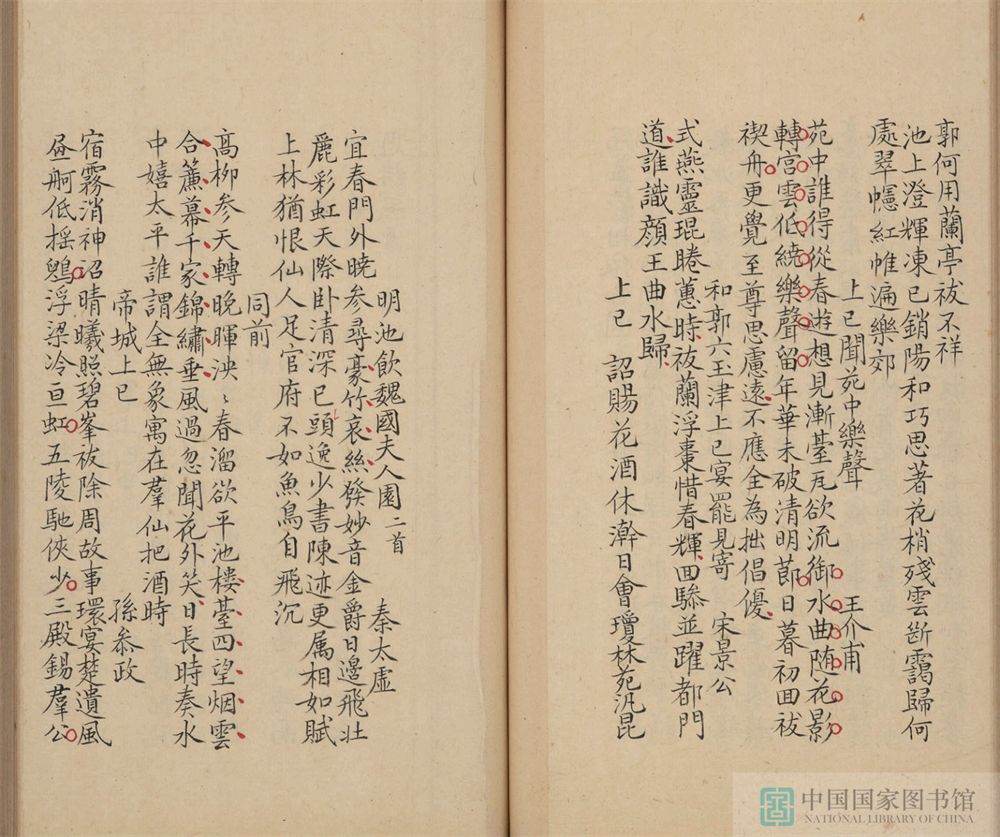 郭何用蘭亭祓不祥
池上澄輝凍已銷陽和巧思著花梢殘雲斷靄歸何
處翠幰紅帷遍樂郊
上巳聞苑中樂聲 王介甫
苑中誰得從春游想見漸臺瓦欲流御水曲随花影
轉宮雲低繞樂聲留年華未破清明莭日暮初回祓
禊舟更覺至尊思慮遠不應全為拙倡優
和郭六玉津上巳宴罷見寄 宋景公
式燕靈琨睠蕙時祓蘭浮棗惜春輝回驂並躍都門
道誰識顔王曲水歸
上巳 詔賜花酒休澣日會瓊林苑汎昆
明池飲魏國夫人園二首 秦太虛
宜春門外曉參尋豪竹哀絲發妙音金爵日邊飛壮
麗彩虹天際卧清深已頭逸少書陳迹更属相如賦
上林猶恨仙人足官府不如魚鳥自飛沉
同前
高柳参天轉晚暉泱〻春溜欲平池樓臺四望烟雲
合簾幕千家錦繡垂風過忽聞花外笑日長時奏水
中嬉太平誰謂全無象寓在羣仙把酒時
帝城上巳 孫叅政
宿霧消神沼晴曦照碧峯祓除周故事環宴楚遺風
昼舸低揺鷁浮梁冷亘虹五陵馳俠少三殿錫羣公
中国国家图书馆
NATIONAL LIBRARY OF CHINA